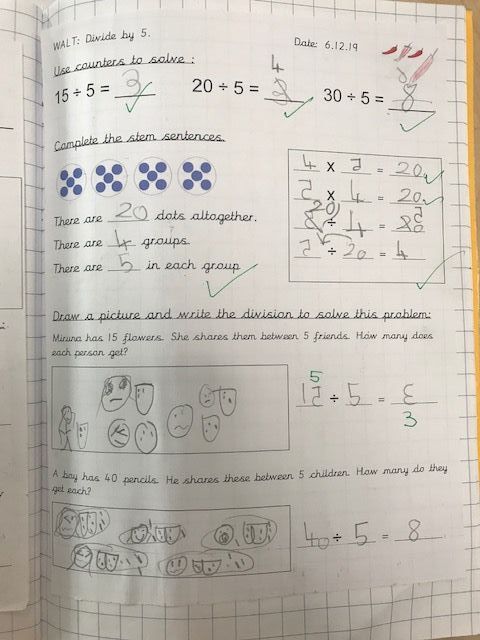 WALT: Divide by 5.
Date: 6.12.19
Use counters to solve :
15 ÷ 5 = 3
4
20 ÷ 5 =
30 ÷ 5 = 8
Complete the stem sentences.
There are 20 dots altogether.
There are 4 groups.
There are 5 in each group
4 x 5 = 20.
5 x 4 = 20.
20 ÷ 4 = 5
5 ÷ 20 = 4
Draw a picture and write the division to solve this problem:
Miruna has 15 flowers. She shares them between 5 friends. How many does
each person get?
5
15 ÷ 5 = 3
3
A boy has 40 pencils. He shares these between 5 children. How many do they
get each?
40 ÷ 5 = 8